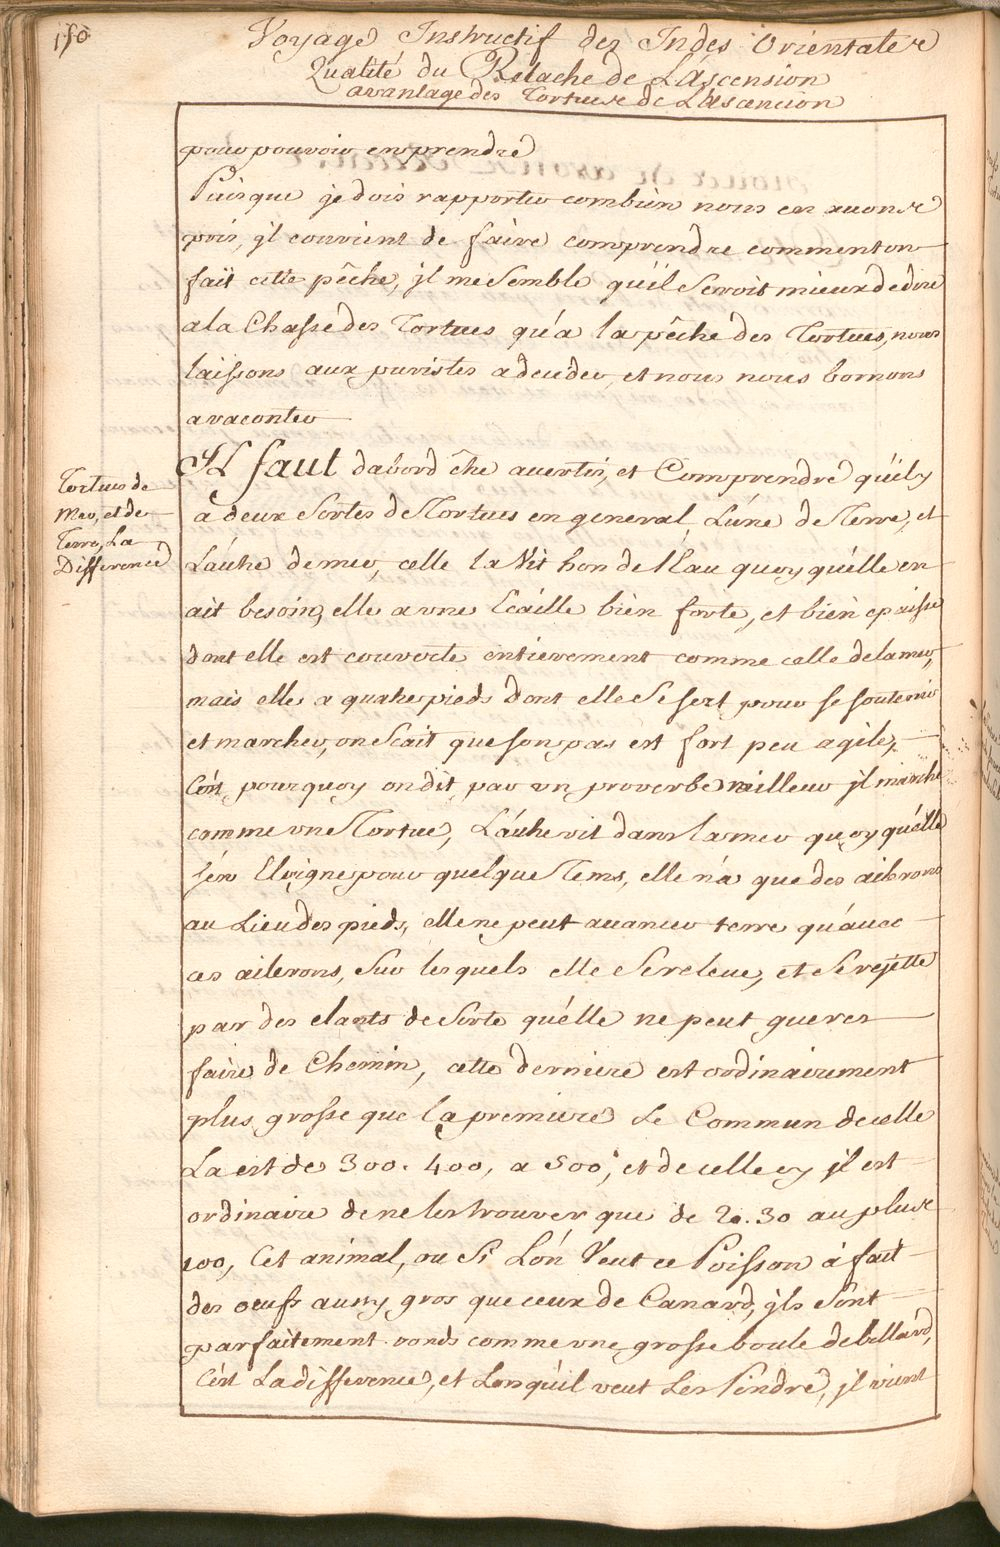 150
Voyage Instructif des Indes Orientales
Qualité du Relache de L'áscension
avantage des Tortues de L'áscencion
pour pouvoir en prendre
Puisque je dois rapporter combien nous en avons
pris, jl convient de faire comprendre comment on
fait cette pêche, jl me Semble qu'il Seroit mieux de dire
a la Chasse des Tortues qu'a la pêche des Tortues, nous
laissons aux puristes a decider, et nous nous bornons
a raconter
Jl faut dabord être avertis, et Comprendre qu'il y
a deux Sortes de Tortues en general, L'úne de Terre, et
L'áutre de mer, celle la Vit hors de l'Eau quoy qu'élle en
ait besoin, elle a une Ecaille bien forte, et bien epaisse
dont elle est couverte entierement comme celle de la mer,
mais elle a quatre pieds dont elle Se sert pour se soutenir
et marcher, on Scait que son pas est fort peu agile,
C'ést pourquoy on dit par un proverbe railleur jl marche
comme une Tortue, L'áutre vit dans la mer quoy qu'élle
s'én Eloigne pour quelque Tems, elle n'a que des ailerons
au Lieu des pieds, elle ne peut avancer terre qu'ávec
ces ailerons, Sur lesquels elle Se releve, et Se rejette
par des elants de Sorte qu'élle ne peut gueres
faire de Chemin, cette derniere est ordinairement
plus grosse que la premiere Le Commun de celle
La est de 300. 400, a 500, et de celle cy jl est
ordinaire de ne les trouver que de 20. 30 au plus
100, Cet animal, ou Si L'ón Veut ce Poisson à fait
des oeufs aussy gros que ceux de Canard, jls Sont
parfaitement ronds comme une grosse boule de billard,
C'ést La difference, et Lorsqu'il veut Les Pondre, jl vient
Tortues de
Mer, et de
Terre, La
Difference